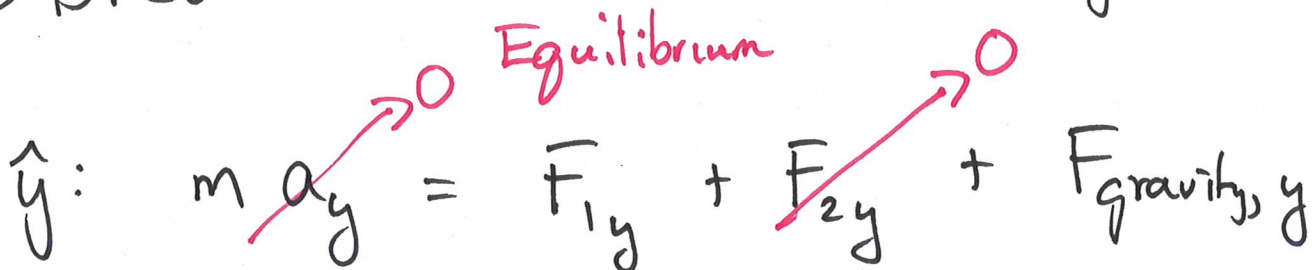 Equilibrium
0 0
ŷ: m a_y = F_1y + F_2y + F_gravity, y